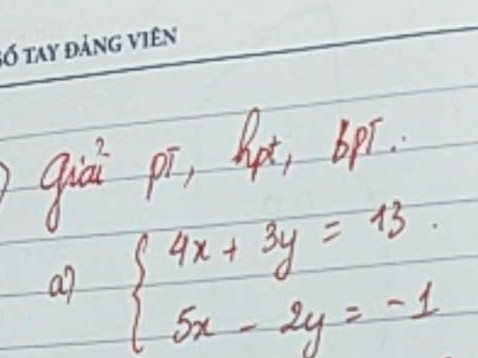 SỔ TAY ĐẢNG VIÊN
) Giải pT, hpt, bpT.
a) { 4x + 3y = 13.
5x - 2y = -1